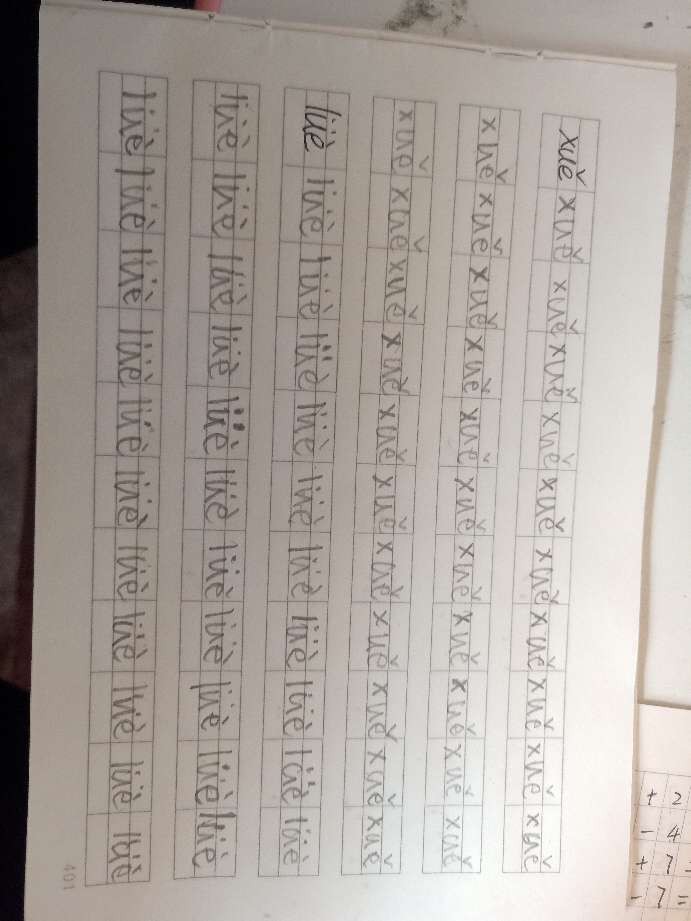 xuě xuě xuě xuě xuě xuě xuě xuě xuě xuě xuě
xuě xuě xuě xuě xuě xuě xuě xuě xuě xuě xuě
xuě xuě xuě xuě xuě xuě xuě xuě xuě xuě xuě
lüè lüè lüè lüè lüè lüè lüè lüè lüè lüè lüè
lüè lüè lüè lüè lüè lüè lüè lüè lüè lüè lüè
lüè lüè lüè lüè lüè lüè lüè lüè lüè lüè lüè
401
+ 2
- 4
+ 7
- 7 =